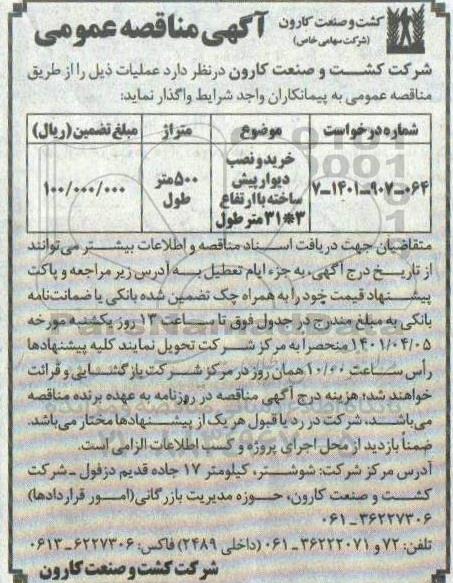 کشت و صنعت کارون
(شرکت سهامی خاص)
آگهی مناقصه عمومی
شرکت کشت و صنعت کارون درنظر دارد عملیات ذیل را از طریق
مناقصه عمومی به پیمانکاران واجد شرایط واگذار نماید:
شماره درخواست موضوع متراژ مبلغ تضمین (ریال)
۷-۱۴۰۱-۹۰۷-۰۶۴ خرید و نصب دیوار پیش ساخته با ارتفاع ۳*۳۱ متر طول ۵۰۰ متر طول ۱۰۰/۰۰۰/۰۰۰
متقاضیان جهت دریافت اسناد مناقصه و اطلاعات بیشتر می‌توانند
از تاریخ درج آگهی، به جزء ایام تعطیل به آدرس زیر مراجعه و پاکت
پیشنهاد قیمت خود را به همراه چک تضمین شده بانکی یا ضمانت‌نامه
بانکی به مبلغ مندرج در جدول فوق تا ساعت ۱۳ روز یکشنبه مورخه
۱۴۰۱/۰۴/۰۵ منحصرا به مرکز شرکت تحویل نمایند کلیه پیشنهادها
رأس ساعت ۱۰/۰۰ همان روز در مرکز شرکت بازگشایی و قرائت
خواهند شد؛ هزینه درج آگهی مناقصه در روزنامه به عهده برنده مناقصه
می‌باشد، شرکت در رد یا قبول هر یک از پیشنهادها مختار می‌باشد.
ضمناً بازدید از محل اجرای پروژه و کسب اطلاعات الزامی است.
آدرس مرکز شرکت: شوشتر، کیلومتر ۱۷ جاده قدیم دزفول - شرکت
کشت و صنعت کارون، حوزه مدیریت بازرگانی (امور قراردادها)
۰۶۱-۳۶۲۲۷۳۰۶
تلفن: ۷۲ و ۳۶۲۲۲۰۷۱-۰۶۱ (داخلی ۲۴۸۹) فاکس: ۶۲۲۷۳۰۶-۰۶۱۳
شرکت کشت و صنعت کارون